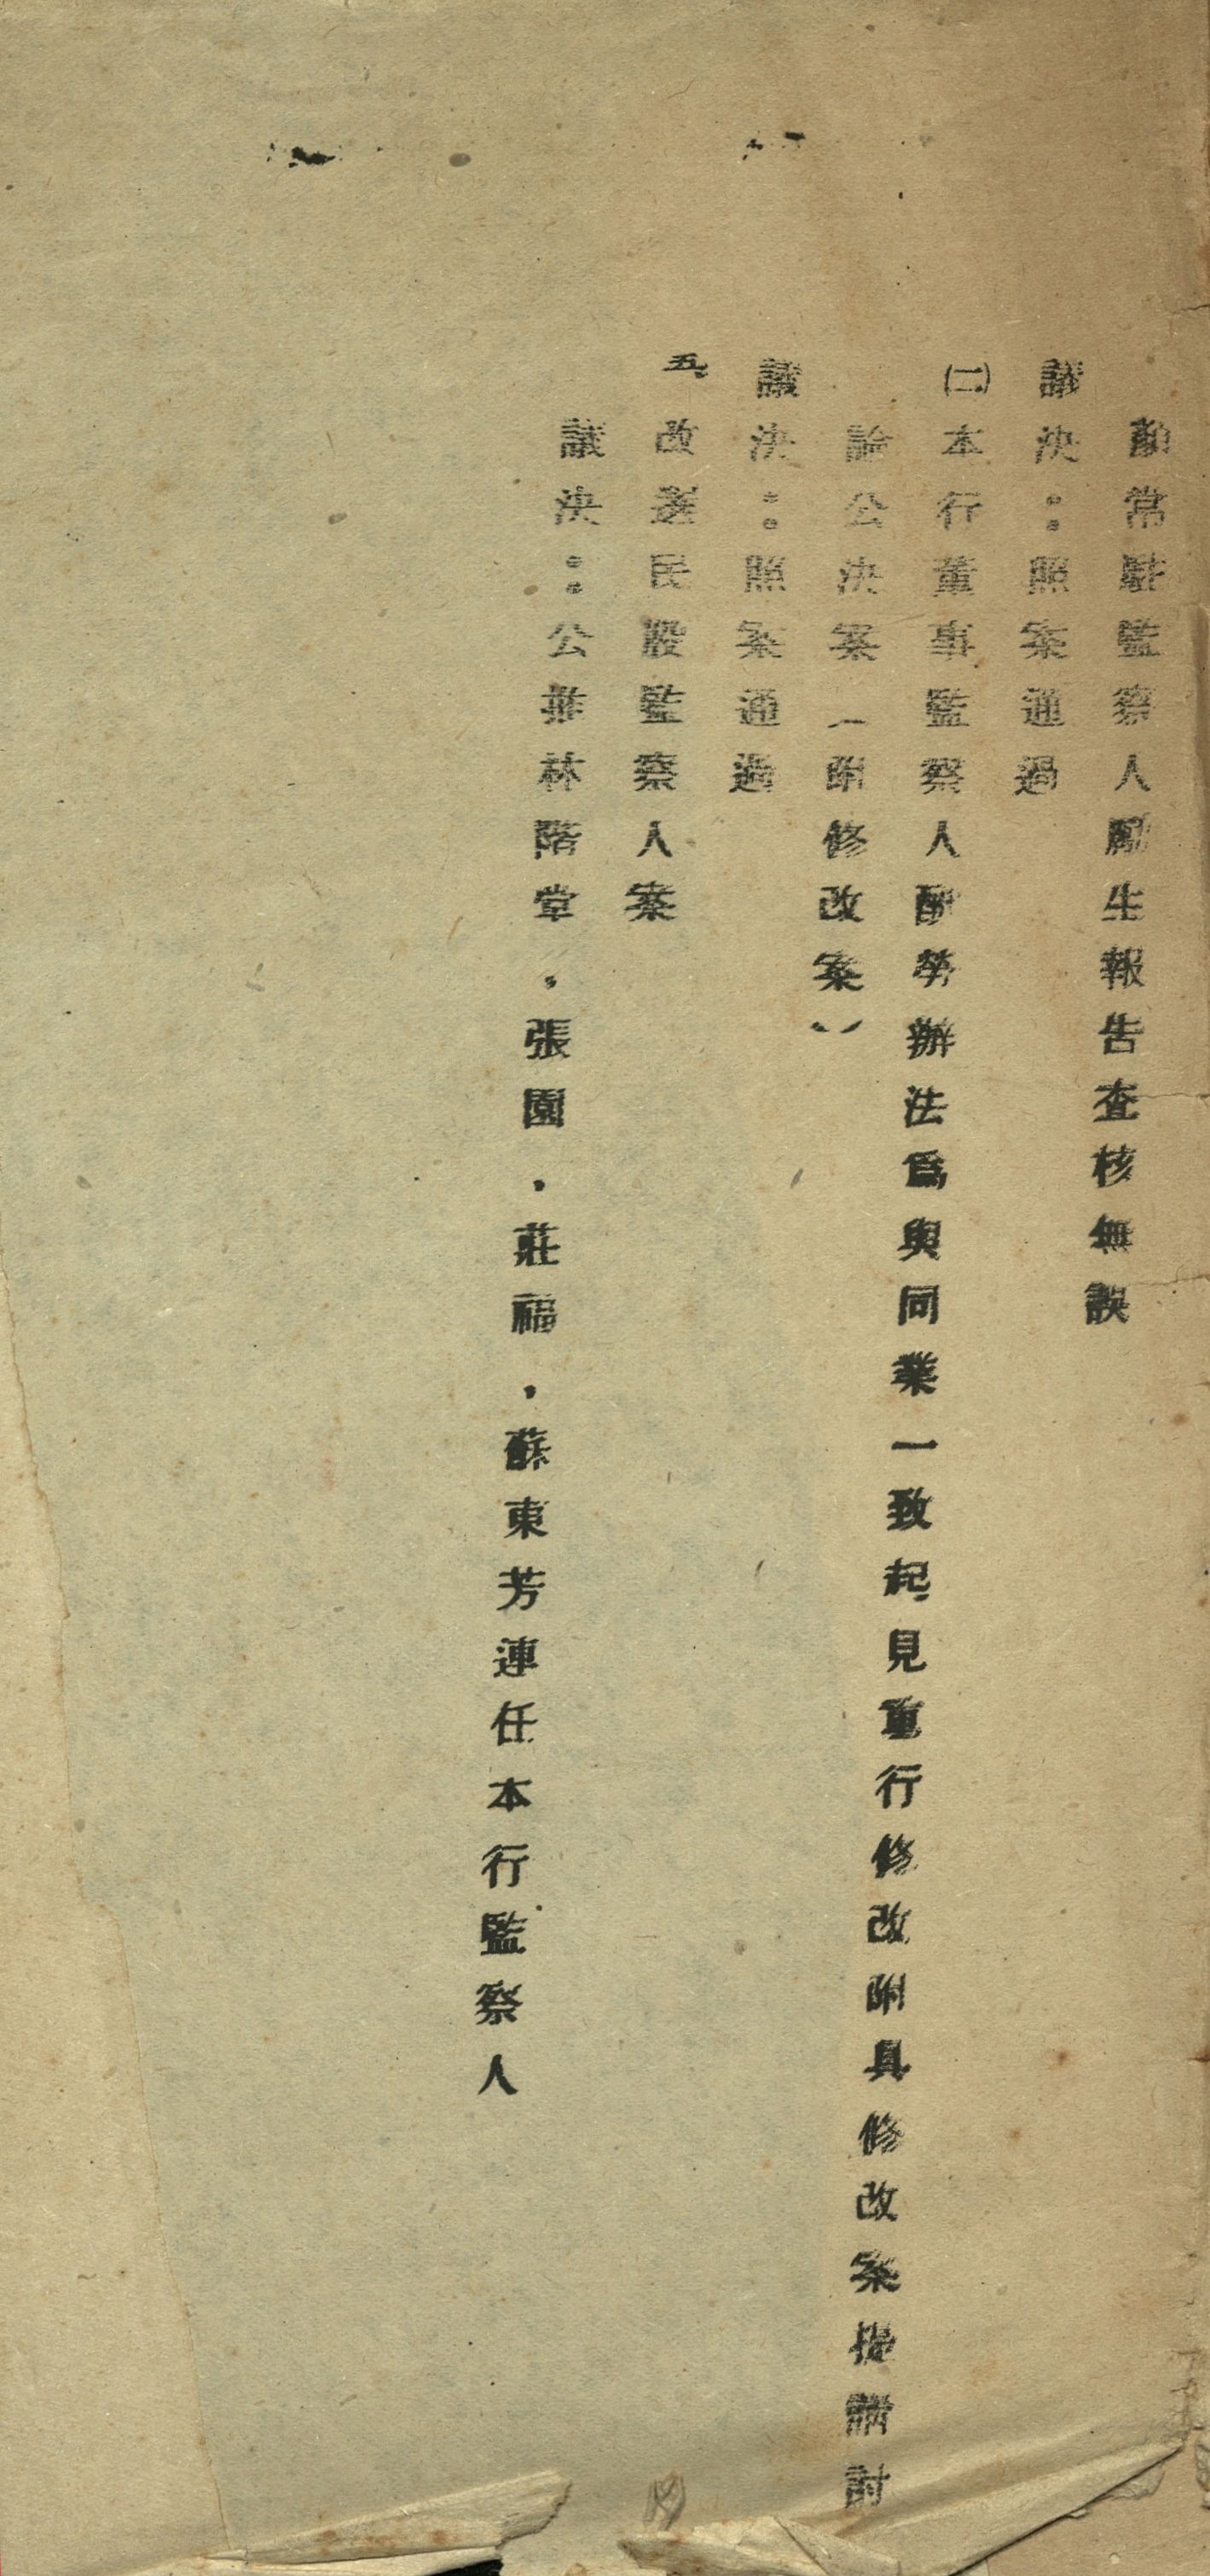 常駐監察人鄺生報告查核無誤
議決：照案通過
㈡本行董事監察人酬勞辦法爲與同業一致起見重行修改附具修改案提請討
論公決案（附修改案）
議決：照案通過
五、改選民股監察人案
議決：公推林階堂，張園，莊福，蘇東芳連任本行監察人